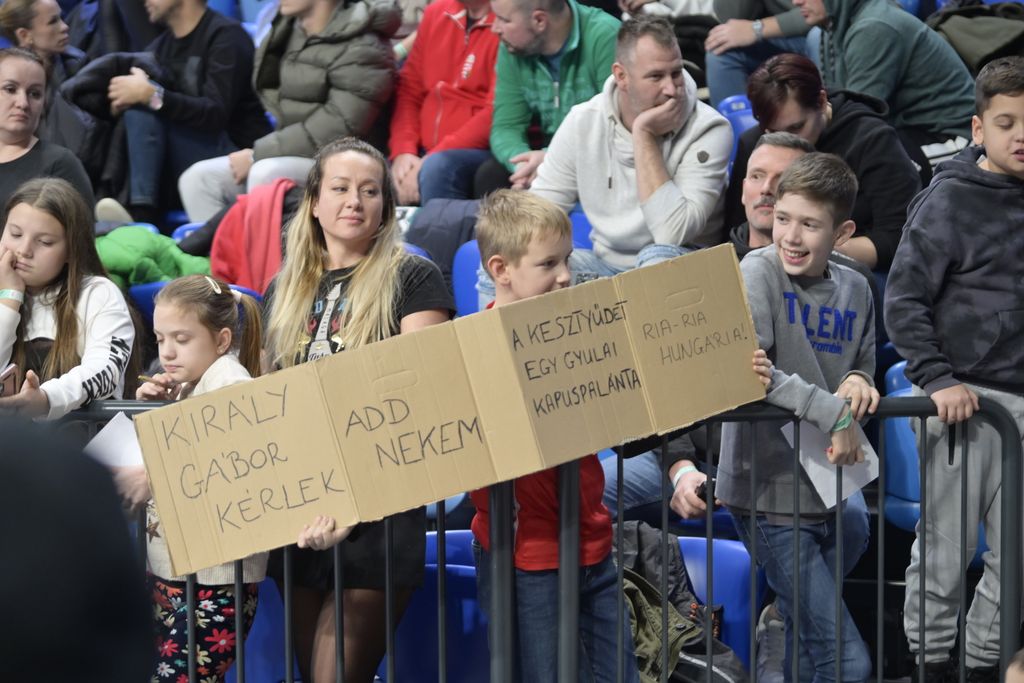 KIRÁLY
GÁBOR
KÉRLEK
ADD
NEKEM
A KESZTYŰDET
EGY GYULAI
KAPUSPALÁNTA
RIA-RIA
HUNGÁRIA!